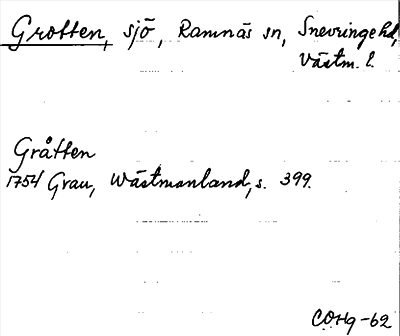 Grotten, sjö, Ramnäs sn, Snevringe hd,
Västm. l.
Gråtten
1754 Grau, Wästmanland, s. 399.
COHg-62